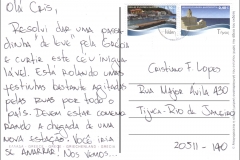 Olá Cris,
Resolvi dar uma passa
dinha de leve pela Grécia
e curtir este céu inigua
lável. Está rolando umas
festinhas bastante agitadas
pelas ruas por todo o
país. Devem estar comemo
rando a chegada de uma
nova estação. Você iria
se amarrar. Nos vemos...
Cristiano F. Lopes
Rua Major Ávila 430
Tijuca - Rio de Janeiro
20511 - 140